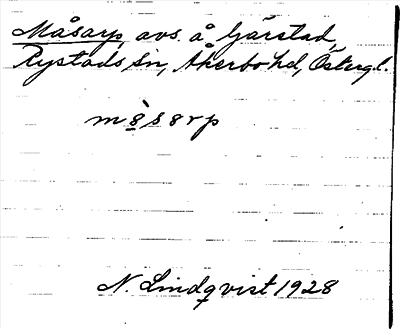 Måsarp, avs. å Gärstad,
Rystads sn, Åkerbo hd, Östergl.
mo̱̍sarp
N. Lindqvist 1928